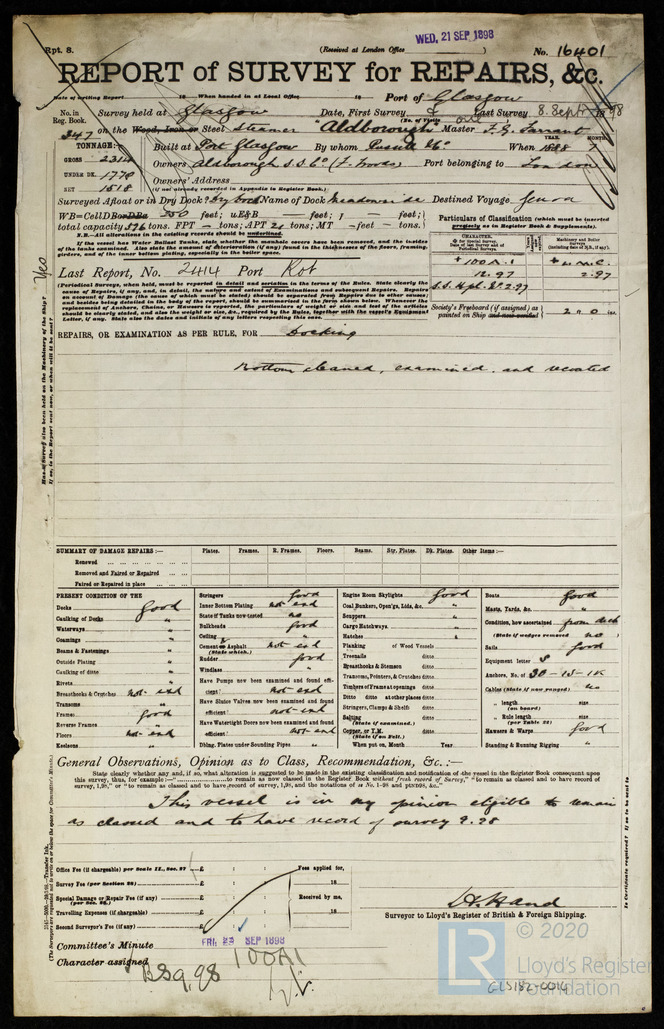 WED, 21 SEP 1898
Rpt. 8.
(Received at London Office
No. 16401
REPORT of SURVEY for REPAIRS, &c.
Date of writing Report 18 When handed in at Local Office 18 Port of Glasgow
No. in Reg. Book. Survey held at Glasgow Date, First Survey Last Survey 8. Sept 1898
347 on the Wood, Iron or Steel steamer "Aldborough" Master F. G. Tarrant
TONNAGE:— Built at Port Glasgow By whom Russell & Co. When 1888 YEAR. 7 MONTH.
GROSS 2314 Owners Aldborough S.S. Co (F. Woods) Port belonging to London
UNDER DK. 1778 Owners' Address
NET 1518 (if not already recorded in Appendix to Register Book.)
Surveyed Afloat or in Dry Dock? Dry Dock Name of Dock Meadowside Destined Voyage Genoa
WB=CellDBorDBa 550 feet; uE&B — feet; f — feet;
total capacity 596 tons. FPT — tons; APT 21 tons; MT — feet — tons.
N.B.—All alterations in the existing records should be underlined.
If the vessel has Water Ballast Tanks, state whether the manholes covers have been removed, and the insides
of the tanks examined. Also state the amount of deterioration (if any) found in the thicknesses of the floors, framing,
girders, and of the inner bottom plating, especially in the boiler space.
Particulars of Classification (which must be inserted
precisely as in Register Book & Supplements).
CHARACTER.
Machinery and Boiler Surveys
100A1
12.97
2.97
Society's Freeboard (if assigned) as painted on Ship and now verified 2 .. 0 ins.
Last Report, No. 2414 Port Rot
(Periodical Surveys, when held, must be reported in detail and seriatim in the terms of the Rules. State clearly the
cause of Repairs, if any, and the nature and extent of Examinations and subsequent Repairs. Repairs
on account of Damage (the cause of which must be stated) should be separated from Repairs due to other causes;
and besides being detailed in the body of the report, should be summarized in the form shewn below. Whenever the
replacement of Anchors, Chains, or Hawsers is reported, the length, weight or size and test of the articles
should be clearly stated, and also the weight or size, &c., required by the Rules, together with the vessel's Equipment
Letter, if any. State also the dates and initials of any letters respecting this case.
REPAIRS, OR EXAMINATION AS PER RULE, FOR Docking
Bottom cleaned, examined and recoated
SUMMARY OF DAMAGE REPAIRS :— Plates. Frames. R. Frames. Floors. Beams. Str. Plates. Dk. Plates. Other Items:—
Renewed
Removed and Faired or Repaired
Faired or Repaired in place
PRESENT CONDITION OF THE
Decks Good
Caulking of Decks "
Waterways "
Coamings "
Beams & Fastenings "
Outside Plating "
Caulking of ditto "
Rivets "
Breasthooks & Crutches not exd
Transoms "
Frames Good
Reverse Frames "
Floors not exd
Keelsons "
Stringers Good
Inner Bottom Plating not exd
State if Tanks now tested no
Bulkheads Good
Ceiling "
Cement or Asphalt not exd
(State which.)
Rudder Good
Windlass "
Have Pumps been now examined and found efficient? not exd
Have Sluice Valves now been examined and found efficient? not exd
Have Watertight Doors now been examined and found efficient? not exd
Dblng. Plates under Sounding Pipes "
Engine Room Skylights Good
Coal Bunkers, Open'gs, Lids, &c. "
Scuppers "
Cargo Hatchways "
Hatches "
Planking of Wood Vessels
Treenails ditto
Breasthooks & Stemson ditto
Transoms, Pointers, & Crutches ditto
Timbers of Frame at openings ditto
Ditto ditto at other places ditto
Stringers, Clamps & Shelfs ditto
Salting ditto
(State if examined.)
Copper, or Y.M. ditto
(State if on Felt.)
When put on, Month Year
Boats Good
Masts, Yards, &c. "
Condition, how ascertained from deck
(State if wedges removed no)
Sails Good
Equipment letter S
Anchors, No. of 3B-1S-1K
Cables (State if now ranged) no
" length size
(on board)
" Rule length size
(per Table 22)
Hawsers & Warps Good
Standing & Running Rigging "
General Observations, Opinion as to Class, Recommendation, &c. :—
State clearly whether any and, if so, what alteration is suggested to be made in the existing classification and notification of the vessel in the Register Book consequent upon
this survey, thus, for example:—" to remain as now classed in the Register Book without fresh record of Survey," "to remain as classed and to have record of
survey, 1,98," or "to remain as classed and to have record of survey, 1,98, and the notations of ss No. 1-98 and ptND98, &c."
This vessel is in my opinion eligible to remain
as classed and to have record of survey 9.98
Office Fee (if chargeable) per Scale II., Sec. 27 £ : :
Survey Fee (per Section 28) £ : :
Special Damage or Repair Fee (if any) (per Sec. 28.) £ : :
Travelling Expenses (if chargeable) £ : :
Second Surveyor's Fee (if any) £ : :
Fees applied for,
18
Received by me,
18
Surveyor to Lloyd's Register of British & Foreign Shipping.
Committee's Minute FRI. 23 SEP 1898
Character assigned 100A1
BS9.98
LR
© 2020
Lloyd's Register
Foundation
GLS182-0016